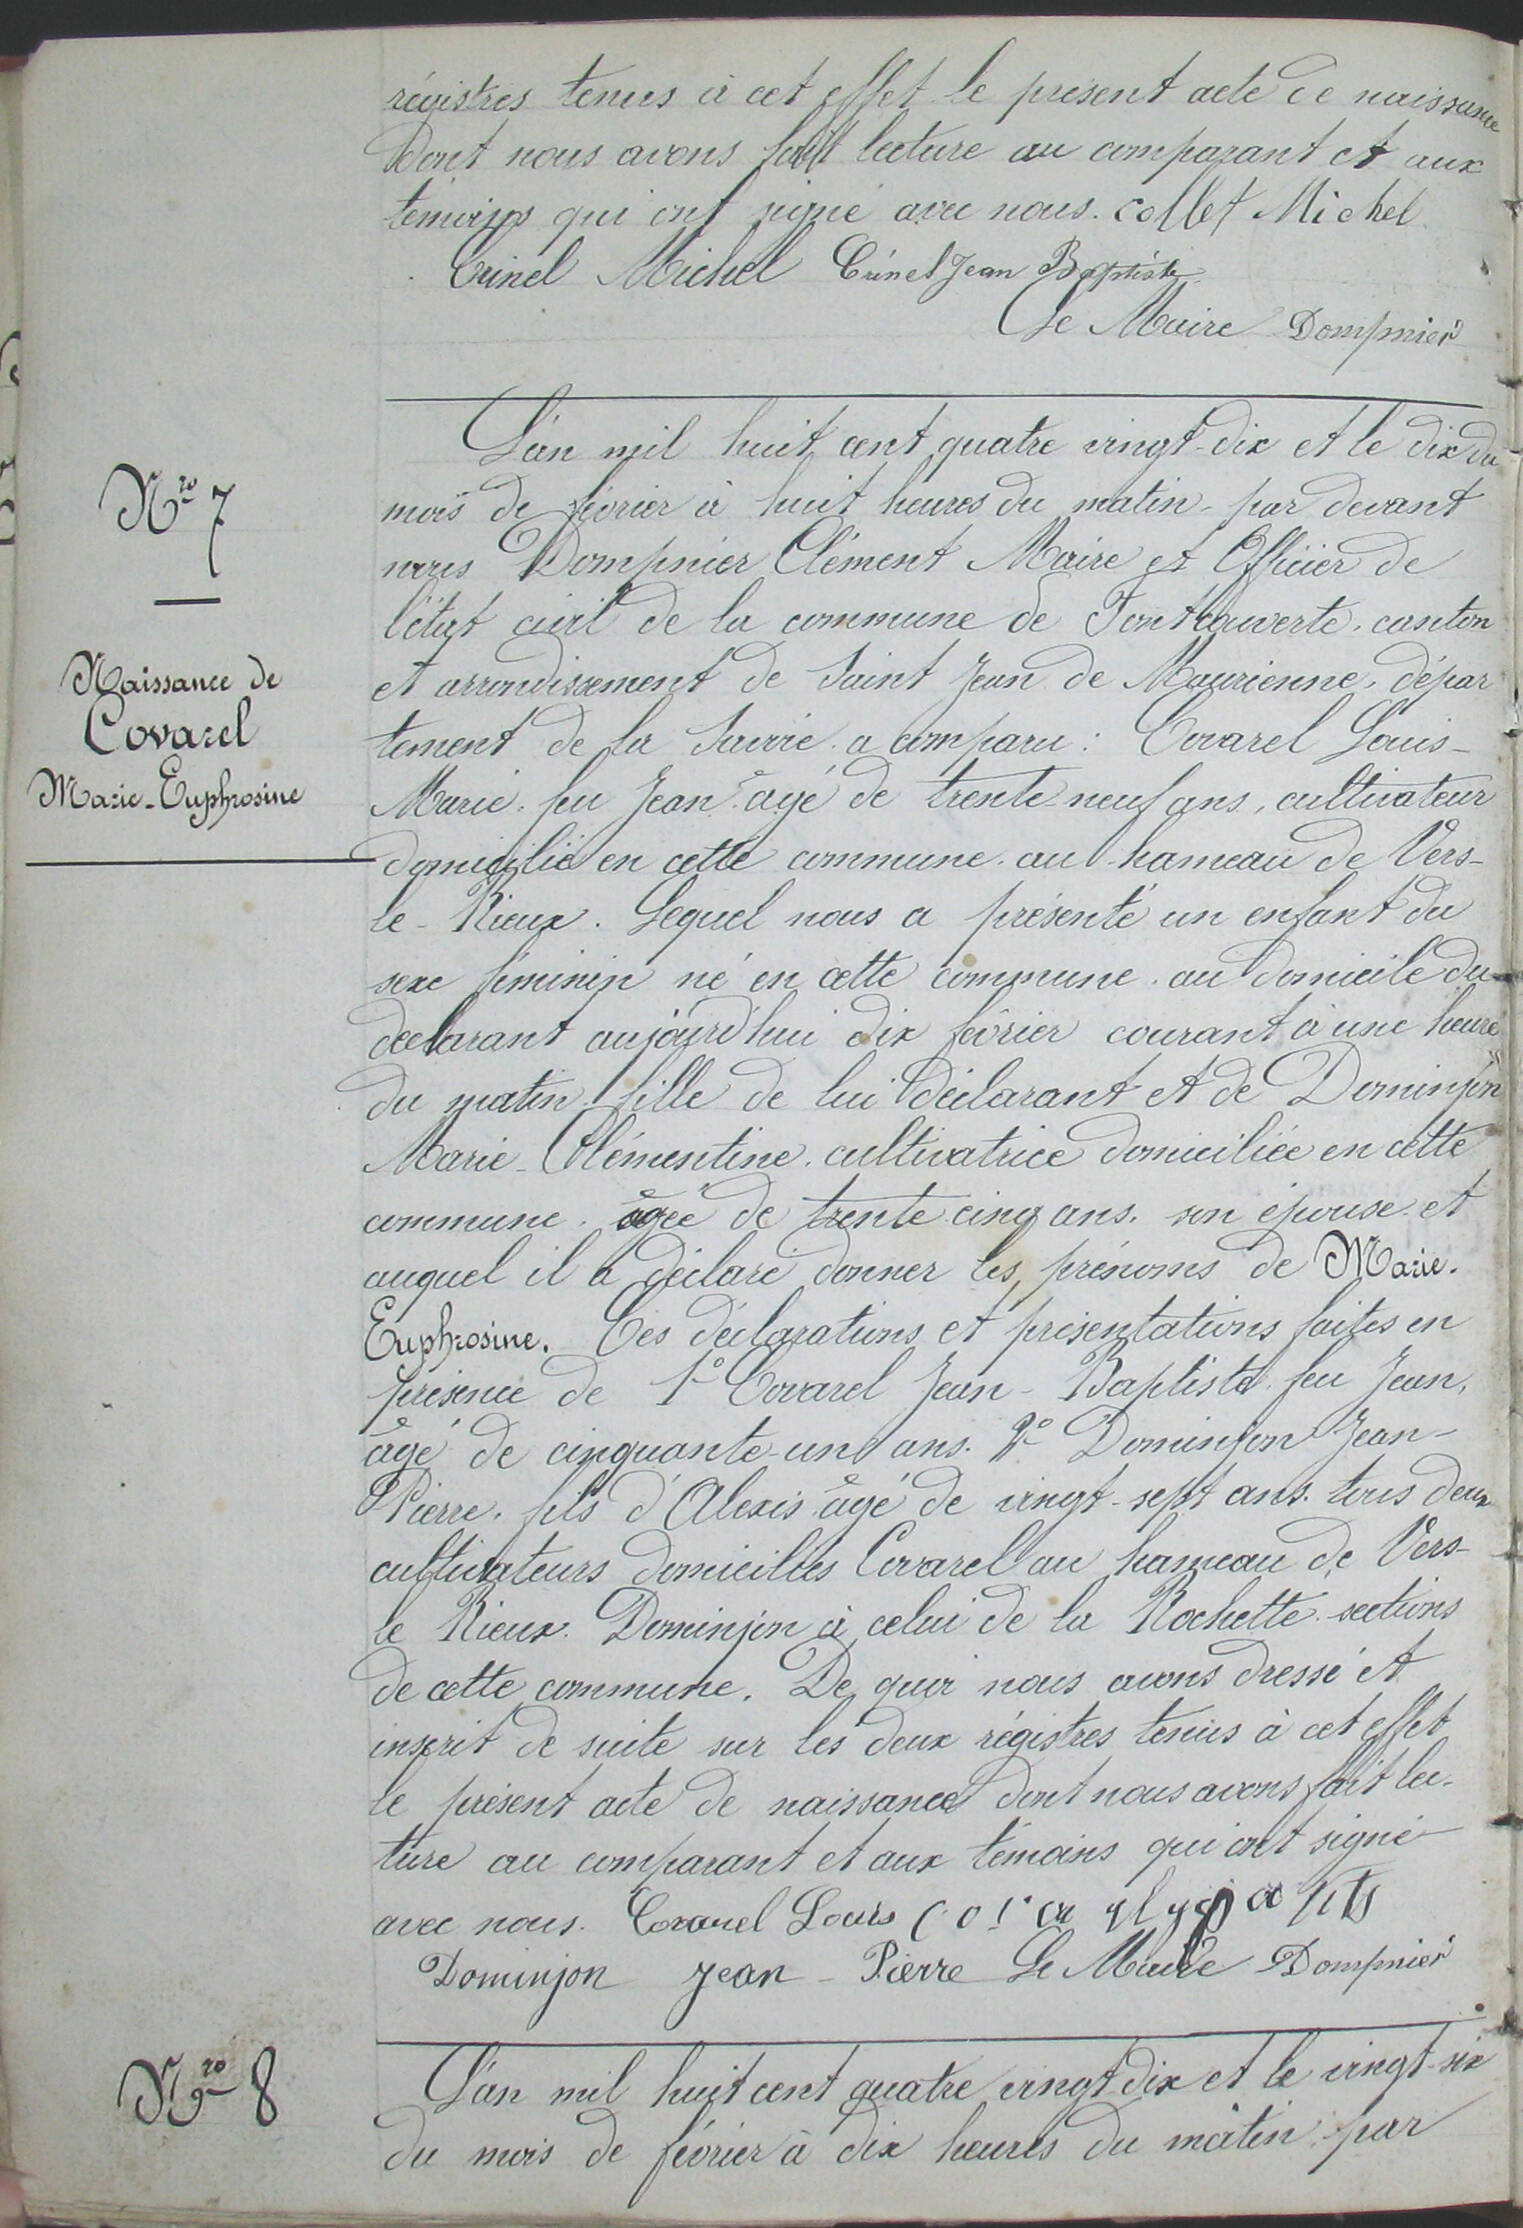 régistres tenus à cet effet le présent acte de naissance
Dont nous avons fait lecture au comparant et aux
témoins qui ont signé avec nous. Collet Michel
Crinel Michel Crinel Jean Baptiste
Le Maire Dompnier
L'an mil huit cent quatre vingt-dix et le dix du
mois de février à huit heures du matin - par devant
nous Dompnier Clément Maire et Officier de
l'état civil de la commune de Fontcouverte, canton
et arrondissement de Saint Jean de Maurienne, dépar
tement de la Savoie. a comparu : Covarel Louis-
Marie, feu Jean, âgé de trente neuf ans, cultivateur
domicilié en cette commune. au hameau de Vers-
le-Rieux. Lequel nous a présenté un enfant du
sexe féminin né en cette commune. au domicile du
déclarant aujourd'hui dix février courant à une heure
du matin. fille de lui déclarant et de Dominjon
Marie-Clémentine. cultivatrice domiciliée en cette
commune. âgée de trente cinq ans. son épouse. et
auquel il a déclaré donner les prénoms de Marie.
Euphrosine. Ces déclarations et présentations faites en
présence de 1° Covarel Jean-Baptiste. feu Jean,
âgé de cinquante-un ans. 2° Dominjon Jean-
Pierre. fils d'Alexis âgé de vingt-sept ans. tous deux
cultivateurs domiciliés Covarel au hameau de Vers-
le Rieux. Dominjon à celui de la Rochette. sections
de cette commune. De quoi nous avons dressé et
inscrit de suite sur les deux régistres tenus à cet effet
le présent acte de naissance dont nous avons fait lec-
ture au comparant et aux témoins qui ont signé
avec nous. Covarel Louis
Dominjon Jean-Pierre Le Maire Dompnier
L'an mil huit cent quatre vingt dix et le vingt-six
du mois de février à dix heures du matin. par
Nro 7
Naissance de
Covarel
Marie-Euphrosine
Nro 8